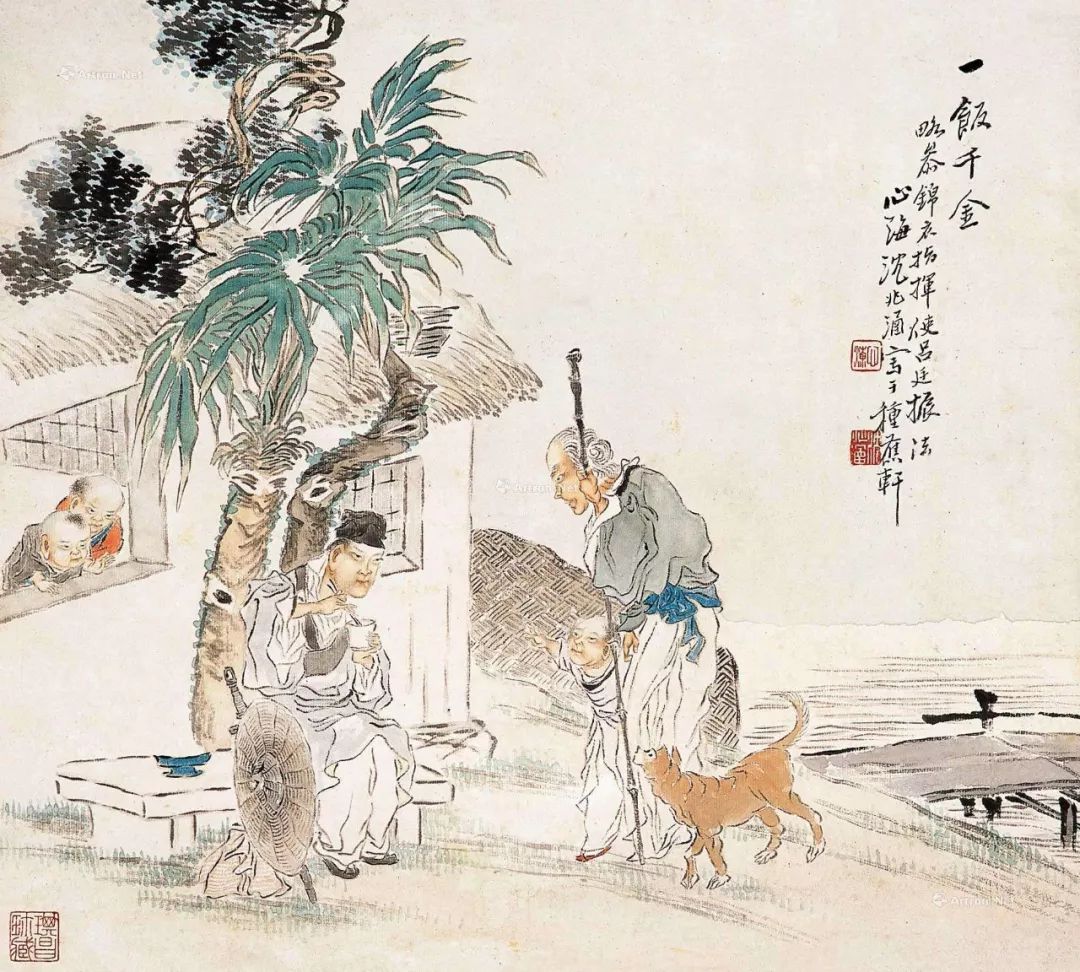 一飯千金
略叅錦衣指揮使呂廷振法
心海沈兆涵寫于種蕉軒
心海
Artron.Net
Artron.Net
Artron.Net